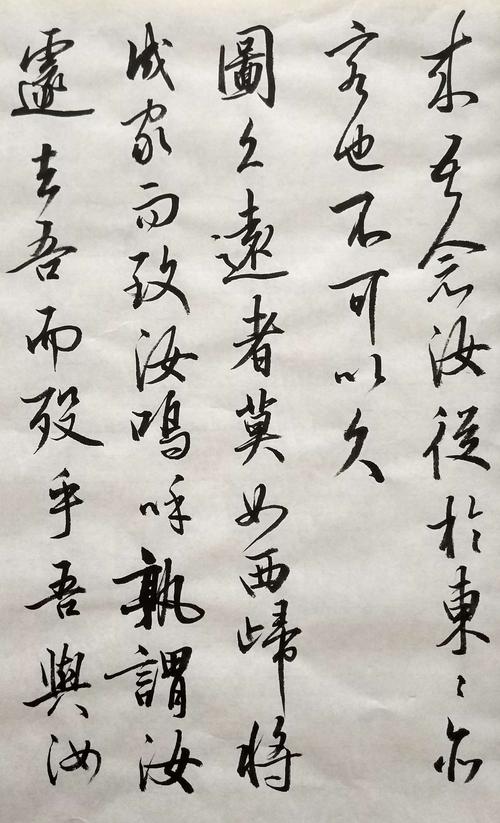 来吾念汝從於東〻亦
客也不可以久
圖久遠者莫如西歸將
成家而致汝嗚呼孰謂汝
遽去吾而歿乎吾與汝